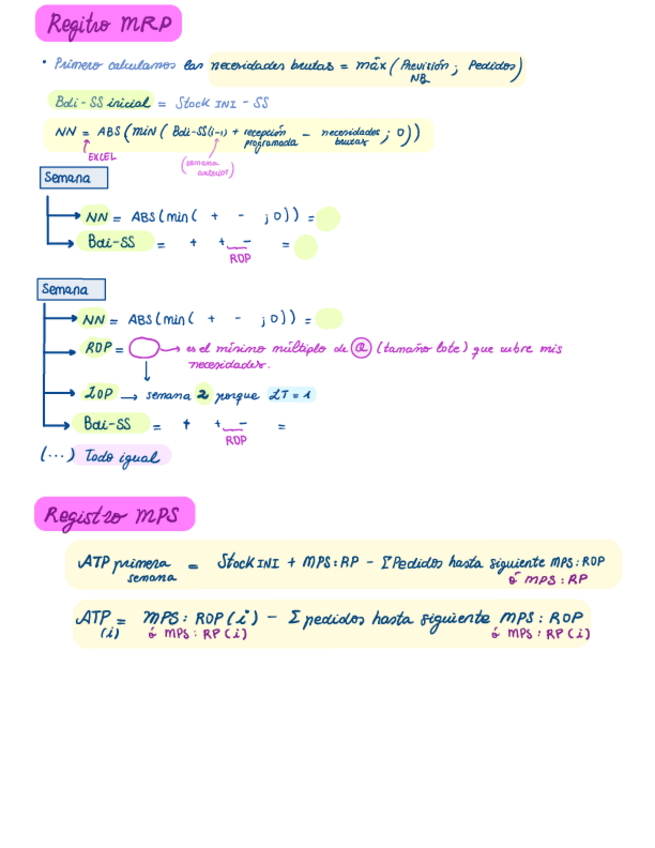 Regitro MRP
• Primero calculamos las necesidades brutas = máx (Previsión ; Pedidos)
NB
Bdi - SS inicial = Stock INI - SS
NN = ABS (MIN ( Bdi-SS(i-1) + recepción programada - necesidades brutas ; 0))
EXCEL
(semana anterior)
Semana
NN = ABS (min ( + - ; 0)) =
Bdi-SS = + + - =
ROP
Semana
NN = ABS (min ( + - ; 0)) =
ROP = → es el mínimo múltiplo de Q (tamaño lote) que cubre mis
necesidades.
LOP → semana 2 porque LT = 1
Bdi-SS = + + - =
ROP
(...) Todo igual
Registro MPS
ATP primera semana = Stock INI + MPS:RP - Σ Pedidos hasta siguiente MPS:ROP
ó MPS:RP
ATP (i) = MPS: ROP (i) - Σ pedidos hasta siguiente MPS: ROP
ó MPS: RP (i) ó MPS: RP (i)